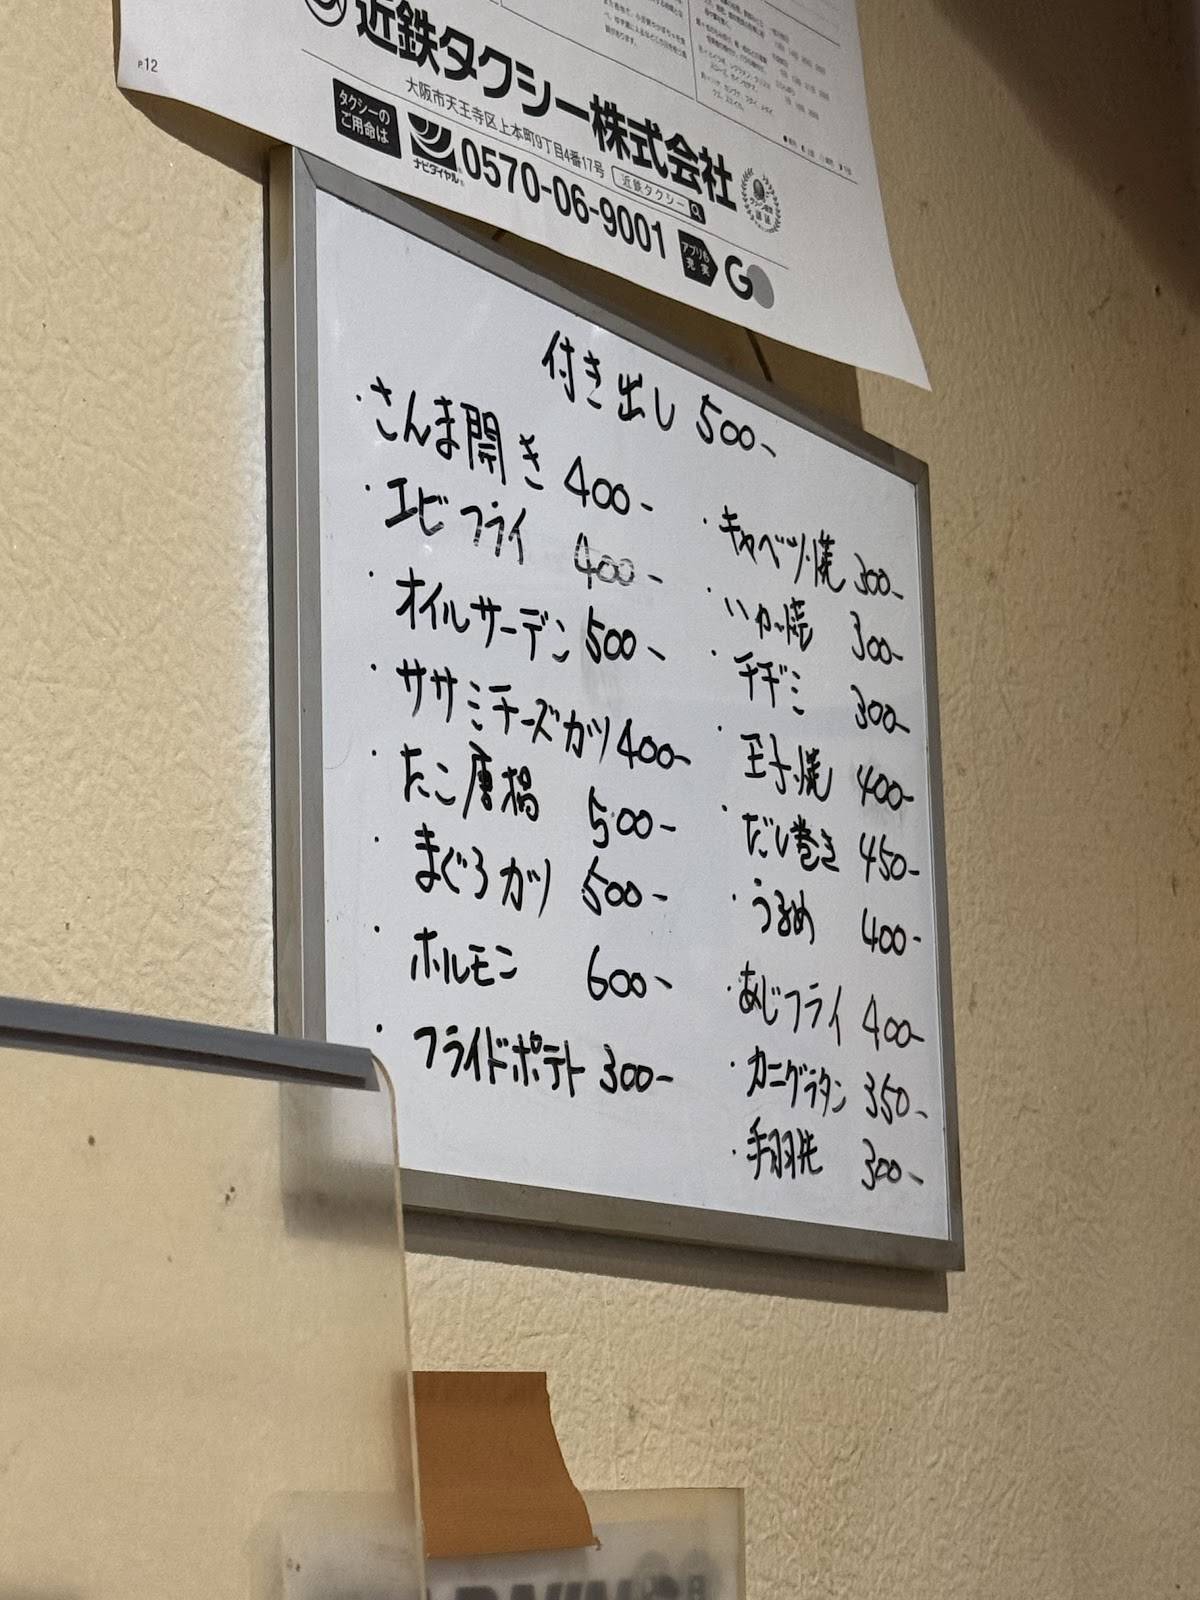 P.12
近鉄タクシー株式会社
大阪市天王寺区上本町9丁目4番17号 近鉄タクシー
タクシーの
ご用命は
ナビダイヤル
0570-06-9001
アプリも
充実
GO
付き出し 500-
・さんま開き 400-
・エビフライ 400-
・オイルサーデン 500-
・ササミチーズカツ 400-
・たこ唐揚 500-
・まぐろカツ 500-
・ホルモン 600-
・フライドポテト 300-
・キャベツ焼 300-
・いか焼 300-
・チヂミ 300-
・玉子焼 400-
・だし巻き 450-
・うるめ 400-
・あじフライ 400-
・カニグラタン 350-
・手羽先 300-